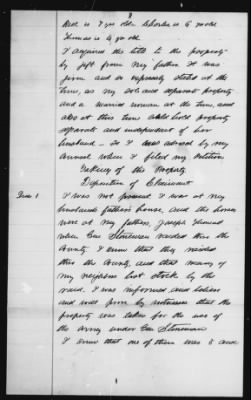 3
Bell is 7 yrs old Charles is 6 yrs old
Thomas is 4 yrs old
I acquired the title to the property
by gift from my father. It was
given and so expressly stated at the
time, as my sole and separate property
and a married woman at the time, and
also at this time able hold property
separate and independent of her
husband - So I was advised by my
Counsel when I filed my Petition
Taking of the Property
Deposition of Claimant
Item 1
I was not present I was at my
husbands fathers house, and the horses
were at my fathers, Joseph
when Gen Stoneman raided thro the
County. I know that they raided
thro the County, and that many of
my neighbors lost stock by the
raid. I was informed and believe
and will prove by witnesses that the
property was taken for the use of
the army under Gen Stoneman
I know that one of them was 5 and